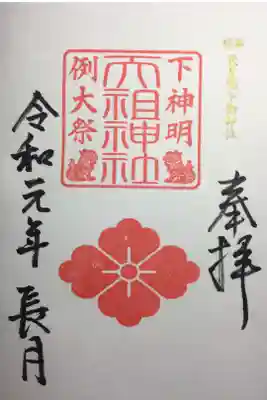 奉拝
下神明
天祖神社
例大祭
令和元年 長月